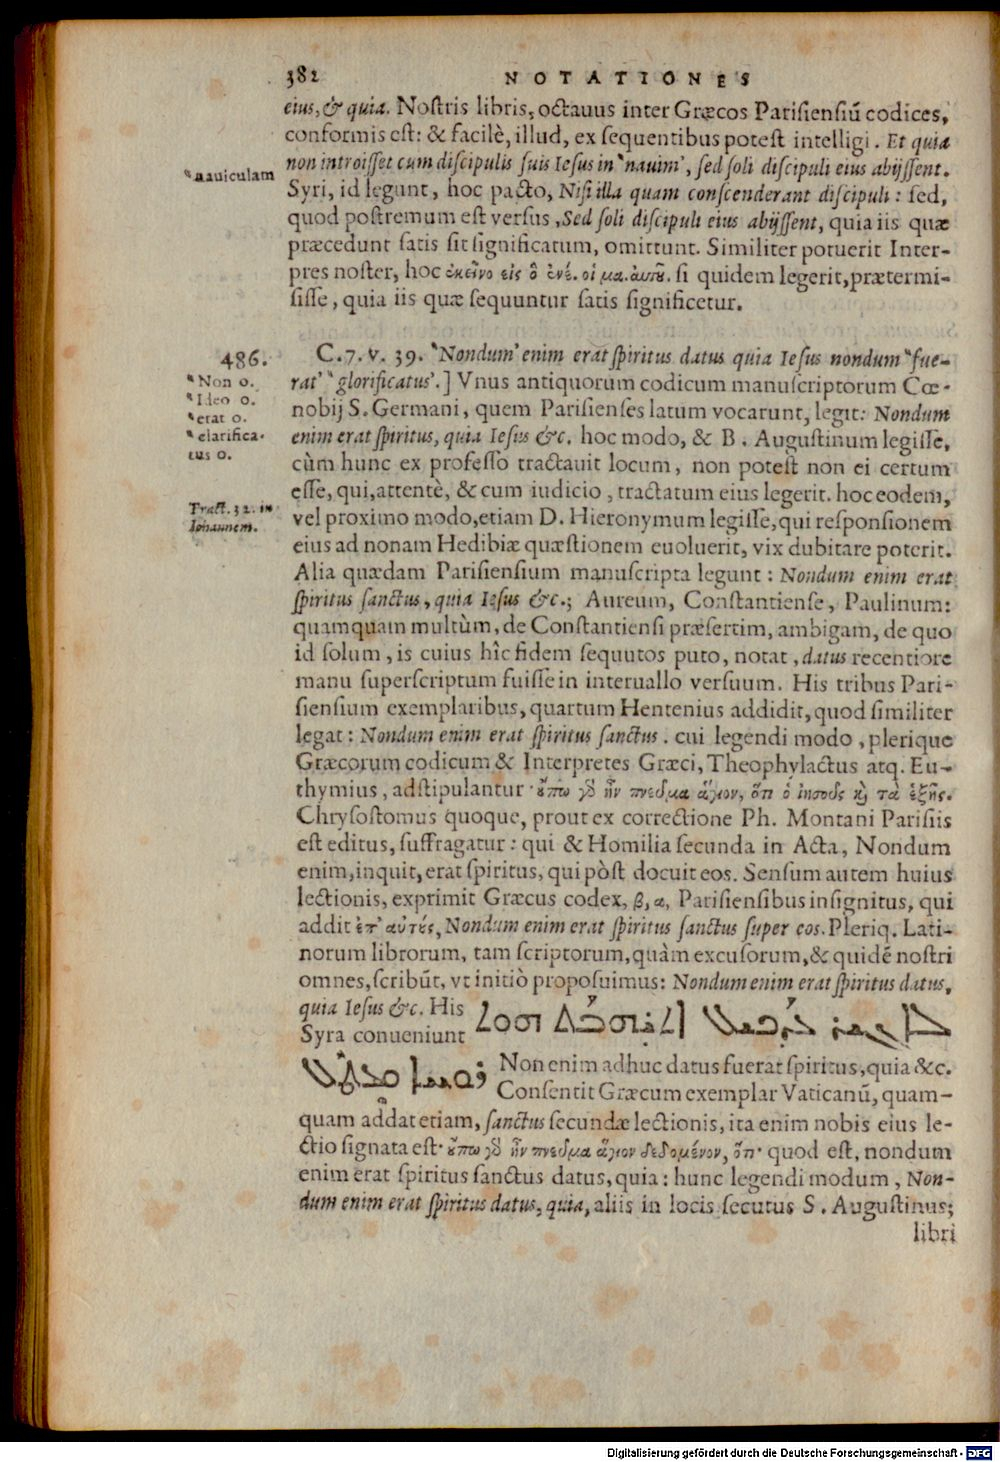 382 NOTATIONES
eius, & quia. Nostris libris, octauus inter Græcos Parisiensiũ codices,
conformis est: & facilè, illud, ex sequentibus potest intelligi. Et quia
non introisset cum discipulis suis Iesus in ‛nauim’, sed soli discipuli eius abijssent.
‛nauiculam
Syri, id legunt, hoc pacto, Nisi illa quam conscenderant discipuli: sed,
quod postremum est versus, Sed soli discipuli eius abijssent, quia iis quæ
præcedunt satis sit significatum, omittunt. Similiter potuerit Inter-
pres noster, hoc ἐκεῖνο εἰς ὃ ἐνέ. οἱ μα. αὐτοῦ. si quidem legerit, prætermi-
sisse, quia iis quæ sequuntur satis significetur.
486. C. 7. v. 39. ‛Nondum’ enim erat spiritus datus quia Iesus nondum ‛fue-
‛Non o.
rat’ ‛glorificatus’.] Vnus antiquorum codicum manuscriptorum Cœ-
‛Ideo o.
nobij S. Germani, quem Parisienses latum vocarunt, legit: Nondum
‛erat o.
enim erat spiritus, quia Iesus &c. hoc modo, & B. Augustinum legisse,
‛clarifica-
tus o.
cùm hunc ex professo tractauit locum, non potest non ei certum
esse, qui, attentè, & cum iudicio, tractatum eius legerit. hoc eodem,
Tract. 32. in
Iohannem.
vel proximo modo, etiam D. Hieronymum legisse, qui responsionem
eius ad nonam Hedibiæ quæstionem euoluerit, vix dubitare poterit.
Alia quædam Parisiensium manuscripta legunt: Nondum enim erat
spiritus sanctus, quia Iesus &c.; Aureum, Constantiense, Paulinum:
quamquam multùm, de Constantiensi præsertim, ambigam, de quo
id solum, is cuius hîc fidem sequutos puto, notat, datus recentiore
manu superscriptum fuisse in interuallo versuum. His tribus Pari-
siensium exemplaribus, quartum Hentenius addidit, quod similiter
legat: Nondum enim erat spiritus sanctus. cui legendi modo, plerique
Græcorum codicum & Interpretes Græci, Theophylactus atq. Eu-
thymius, adstipulantur· οὔπω γὸ ἦν πνεῦμα ἅγιον, ὅτι ὁ ἰησοῦς κὶ τὰ ἑξῆς.
Chrysostomus quoque, prout ex correctione Ph. Montani Parisiis
est editus, suffragatur: qui & Homilia secunda in Acta, Nondum
enim, inquit, erat spiritus, qui pòst docuit eos. Sensum autem huius
lectionis, exprimit Græcus codex, β, α, Parisiensibus insignitus, qui
addit ἐπ᾿ αὐτές, Nondum enim erat spiritus sanctus super eos. Pleriq. Lati-
norum librorum, tam scriptorum, quàm excusorum, & quidẽ nostri
omnes, scribũt, vt initiò proposuimus: Nondum enim erat spiritus datus,
quia Iesus &c. His
Syra conueniunt
Non enim adhuc datus fuerat spiritus, quia &c.
Consentit Græcum exemplar Vaticanũ, quam-
quam addat etiam, sanctus secundæ lectionis, ita enim nobis eius le-
ctio signata est· οὔπω γὸ ἦν πνεῦμα ἅγιον δεδομένον, ὅτι· quod est, nondum
enim erat spiritus sanctus datus, quia: hunc legendi modum, Non-
dum enim erat spiritus datus, quia, aliis in locis secutus S. Augustinus;
libri
Digitalisierung gefördert durch die Deutsche Forschungsgemeinschaft - DFG